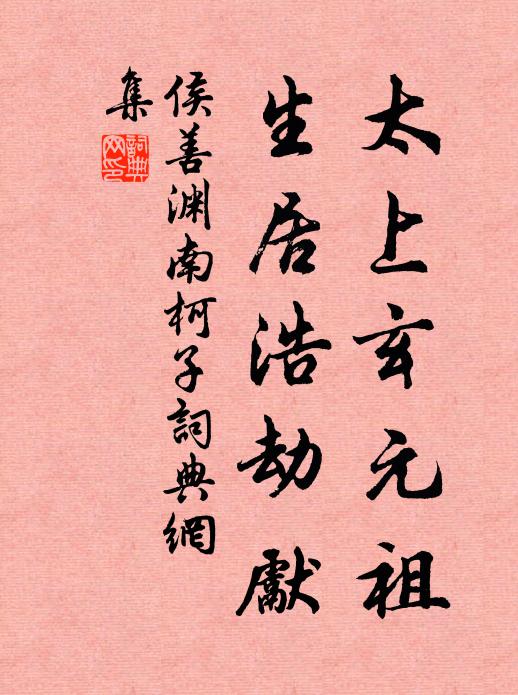 太上玄元祖
生居浩劫獻
侯善渊南柯子詞典網
集
詞典
网印